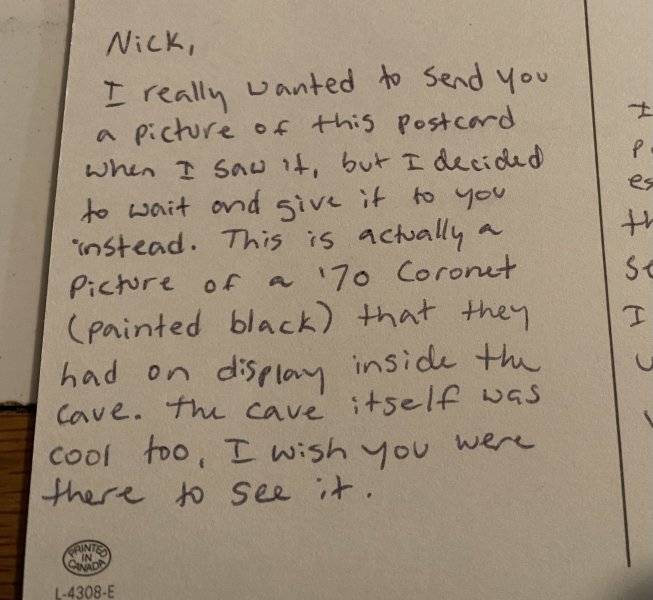 Nick,
I really wanted to send you
a picture of this postcard
when I saw it, but I decided
to wait and give it to you
instead. This is actually a
picture of a '70 Coronet
(painted black) that they
had on display inside the
cave. The cave itself was
cool too, I wish you were
there to see it.
PRINTED
IN
CANADA
L-4308-E
I
P
es
th
se
I